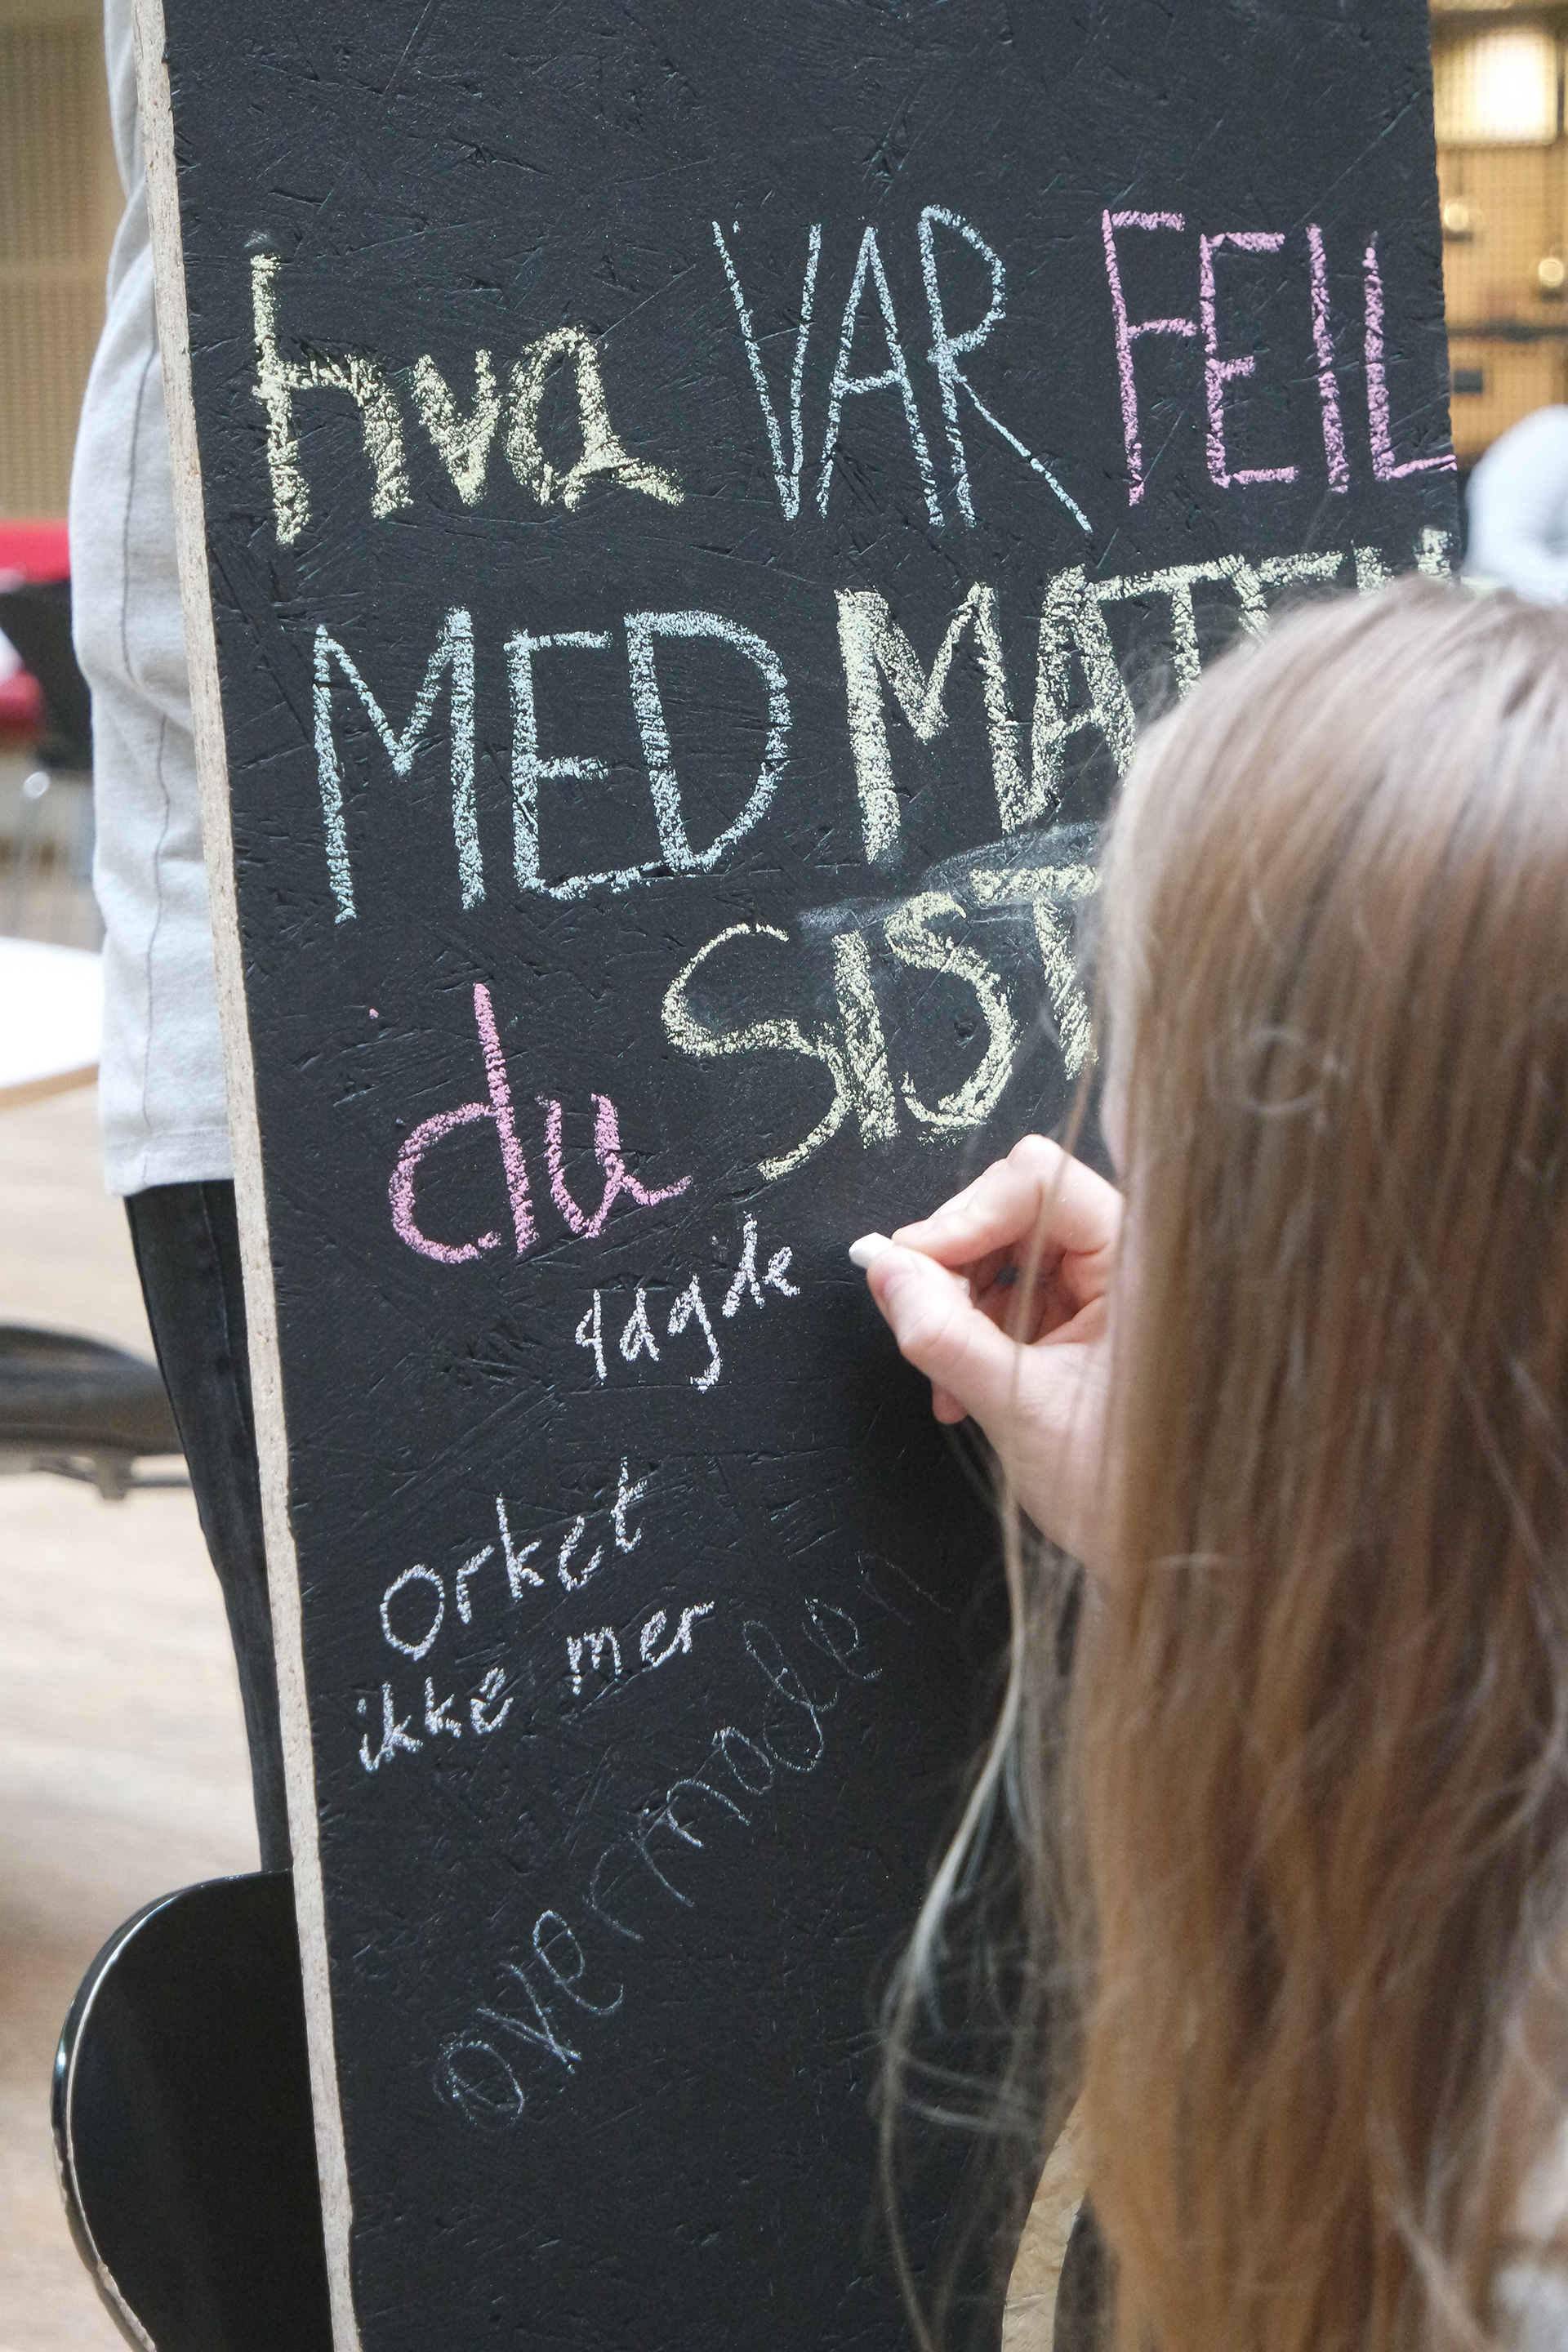 hva VAR FEIL
MED MATEN
du SIST
Orket
ikke mer
overmoden